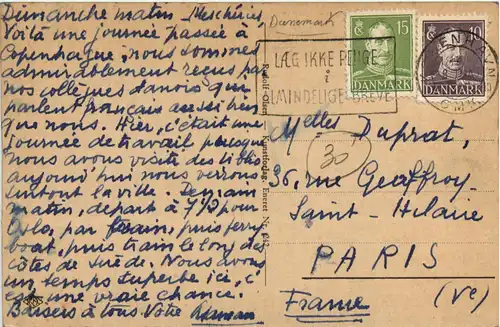 Dimanche matin Mes chéries
Voilà une journée passée à
Copenhague, nous sommes
admirablement reçus par
nos collègues danois qui
parlent français aussi bien
que nous. Hier, c'était une
journée de travail puisque
nous avons visité des
aujourd'hui nous verrons
surtout la ville. Demain
matin, départ à 7h½ pour
Oslo, par train, puis ferry
boat, puis train le long des
côtes de Suède. Nous avons
un temps superbe ici, c'
est une vraie chance.
Baisers à tous Votre Maman
Danemark
LÆG IKKE PENGE
i
ALMINDELIGE BREVE
15
DANMARK
10
DANMARK
Melles Duprat,
30
36, rue Geoffroy
Saint-Hilaire
PARIS
France (Ve)